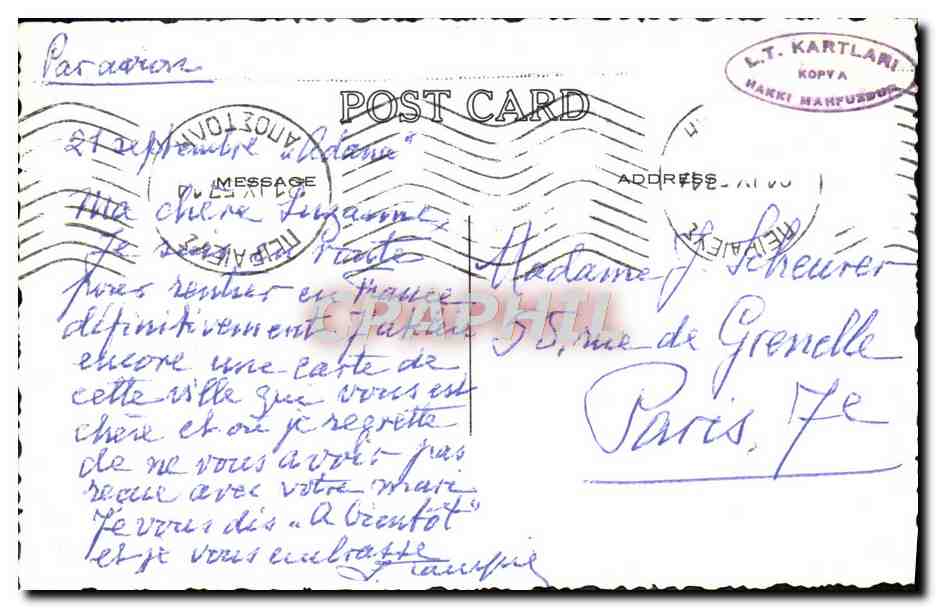 Par avion
L.T. KARTLARI
KOPYA
HAKKI MAHFUZDUR
POST CARD
ΑΠΟΣΤΟΛΗ
ΠΕΙΡΑΙΕΥΣ
ΠΕΙΡΑΙΕΥΣ
MESSAGE
ADDRESS
21 septembre „Adana"
Ma chère Suzanne,
Je suis en route
pour rentrer en France
définitivement
encore une carte de
cette ville qui vous est
chère et où je regrette
de ne vous avoir pas
reçue avec votre mari
Je vous dis „A bientôt"
et je vous embrasse
Madame J. Scheurer
55, rue de Grenelle
Paris, 7e
CPAPHIL